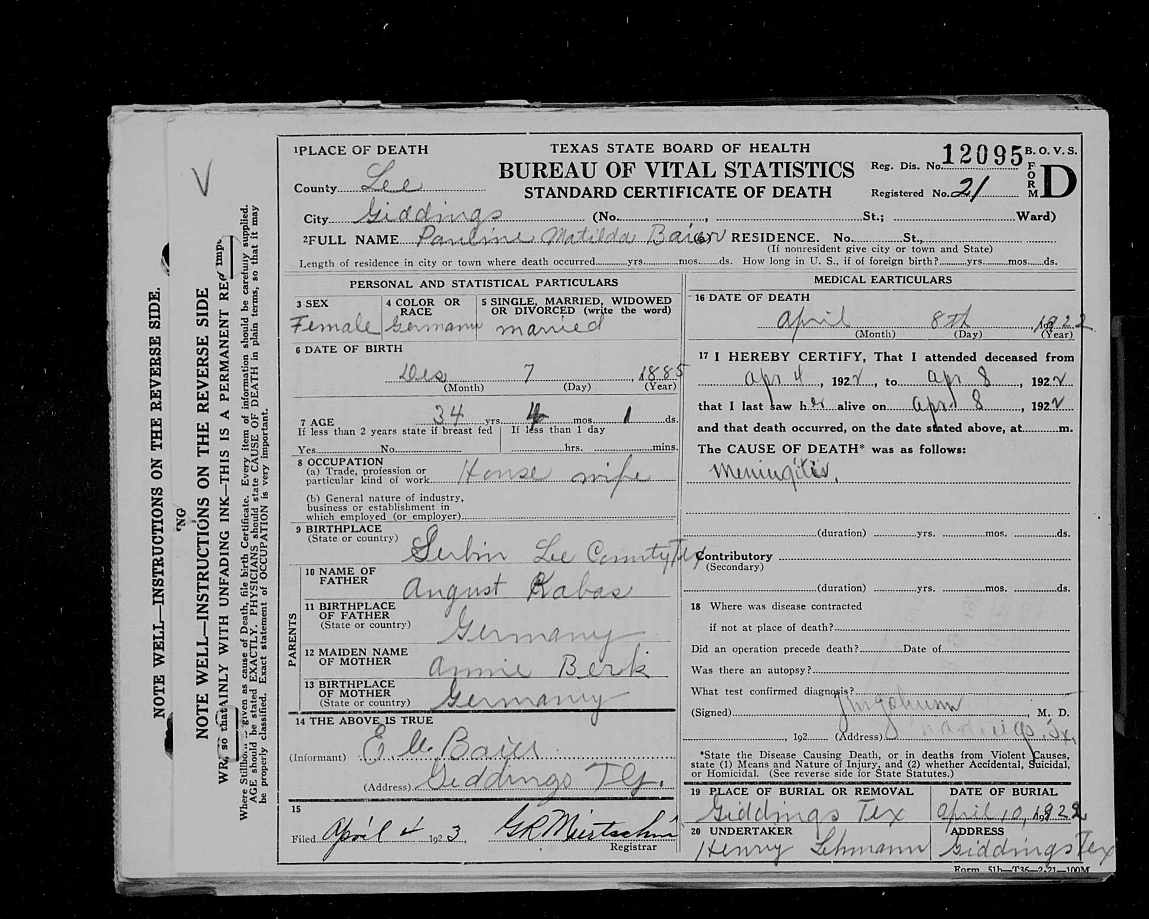 NOTE WELL—INSTRUCTIONS ON THE REVERSE SIDE.
NG
NOTE WELL—INSTRUCTIONS ON THE REVERSE SIDE
AINLY WITH UNFADING INK—THIS IS A PERMANENT REC
Where Stillbo given as cause of Death, file birth Certificate. Every item of information should be carefully supplied.
AGE should be stated EXACTLY. PHYSICIANS should state CAUSE OF DEATH in plain terms, so that it may
be properly classified. Exact statement of OCCUPATION is very important.
V
1 PLACE OF DEATH
County Lee
TEXAS STATE BOARD OF HEALTH
BUREAU OF VITAL STATISTICS
STANDARD CERTIFICATE OF DEATH
Reg. Dis. No. 12095 B. O. V. S.
Registered No. 21
FORM D
City Giddings (No. , St.; Ward)
2 FULL NAME Pauline Matilda Baier RESIDENCE. No. St.,
(If nonresident give city or town and State)
Length of residence in city or town where death occurred yrs. mos. ds. How long in U. S., if of foreign birth? yrs. mos. ds.
PERSONAL AND STATISTICAL PARTICULARS
3 SEX
Female
4 COLOR OR RACE
German
5 SINGLE, MARRIED, WIDOWED
OR DIVORCED (write the word)
married
6 DATE OF BIRTH
Dec 7, 1885
(Month) (Day) (Year)
7 AGE 34 yrs. 4 mos. 1 ds.
If less than 2 years state if breast fed
Yes No
If less than 1 day
hrs. mins.
8 OCCUPATION
(a) Trade, profession or
particular kind of work House wife
(b) General nature of industry,
business or establishment in
which employed (or employer)
9 BIRTHPLACE
(State or country) Serbin Lee County Tex
PARENTS
10 NAME OF
FATHER August Kabas
11 BIRTHPLACE
OF FATHER
(State or country) Germany
12 MAIDEN NAME
OF MOTHER Annie Berk
13 BIRTHPLACE
OF MOTHER
(State or country) Germany
14 THE ABOVE IS TRUE
(Informant) Baier
(Address) Giddings
15
Filed April 4 1923
Registrar
MEDICAL EARTICULARS
16 DATE OF DEATH
April 8th 1922
(Month) (Day) (Year)
17 I HEREBY CERTIFY, That I attended deceased from
Apr 4, 1922, to Apr 8, 1922
that I last saw her alive on Apr 8, 1922
and that death occurred, on the date stated above, at m.
The CAUSE OF DEATH* was as follows:
Meningitis.
(duration) yrs. mos. ds.
Contributory
(Secondary)
(duration) yrs. mos. ds.
18 Where was disease contracted
if not at place of death?
Did an operation precede death? Date of
Was there an autopsy?
What test confirmed diagnosis?
(Signed) , M. D.
, 192 (Address) Giddings, Tx.
*State the Disease Causing Death, or in deaths from Violent Causes,
state (1) Means and Nature of Injury, and (2) whether Accidental, Suicidal,
or Homicidal. (See reverse side for State Statutes.)
19 PLACE OF BURIAL OR REMOVAL
Giddings Tex
DATE OF BURIAL
April 10, 1922
20 UNDERTAKER
Henry Lehmann
ADDRESS
Giddings Tex
Form 51b—T36—2-21—100M